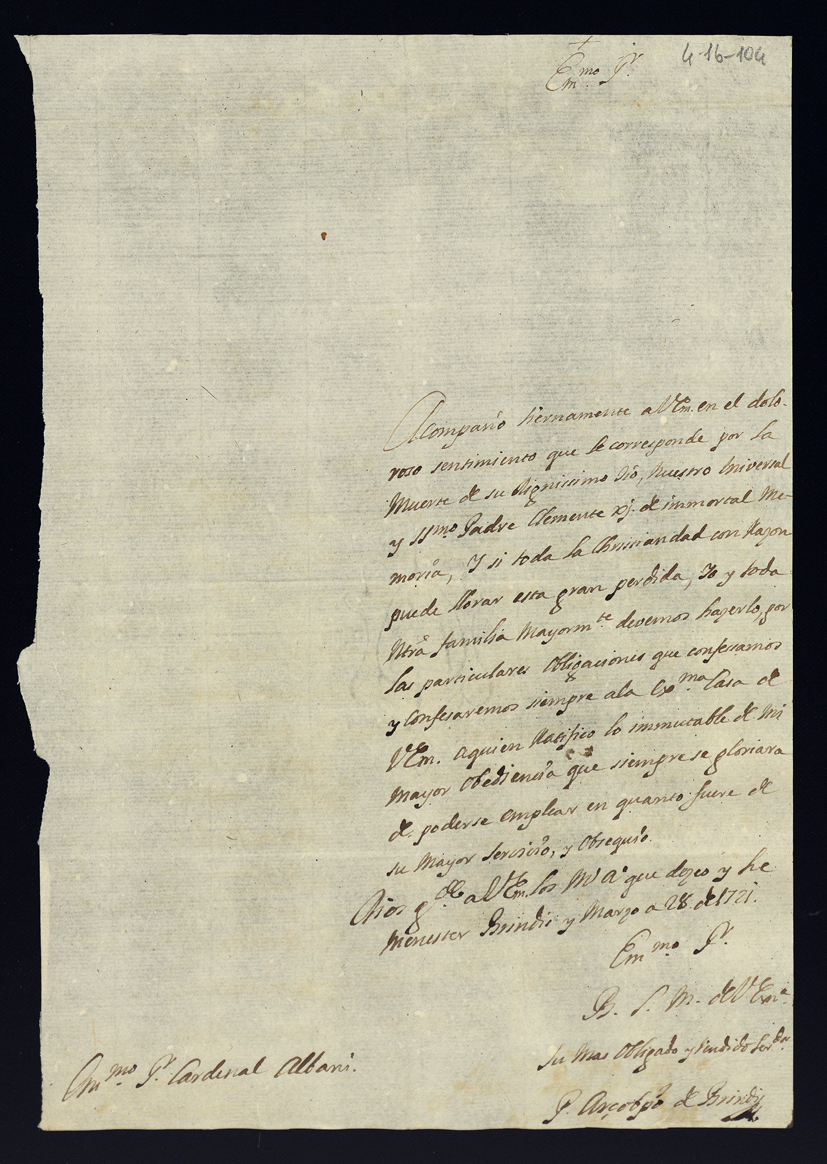 4-16-104
Em.mo S.r
Acompaño tiernamente a V Em. en el dolo-
roso sentimiento que le corresponde por la
Muerte de su dignissimo Tio, Nuestro Universal
y SS.mo Padre Clemente xj. de immortal Me-
moria, Y si toda la Christiandad con Razon
puede llorar esta gran perdida, Io y toda
Ntrâ familia Mayorm.te devemos hazerlo, por
las particulares Obligaciones que confessamos
y Confesaremos siempre ala Ex.ma Casa de
V Em. aquien Ratifico lo immutable de mi
Mayor Obediencia que siempre se gloriara
de poderse emplear en quanto fuere de
su Mayor Servicio, y Obsequio.
Dios g.de a V Em. los M.s A.s que deseo y he
menester Brindis y Marzo a 28 de 1721.
Em.mo S.r
B. L. M. de V Em.a
Su Mas Obligado y Rendido Ser.dor
P. Arçobpo de Brindis
Em.mo S.r Cardenal Albani.